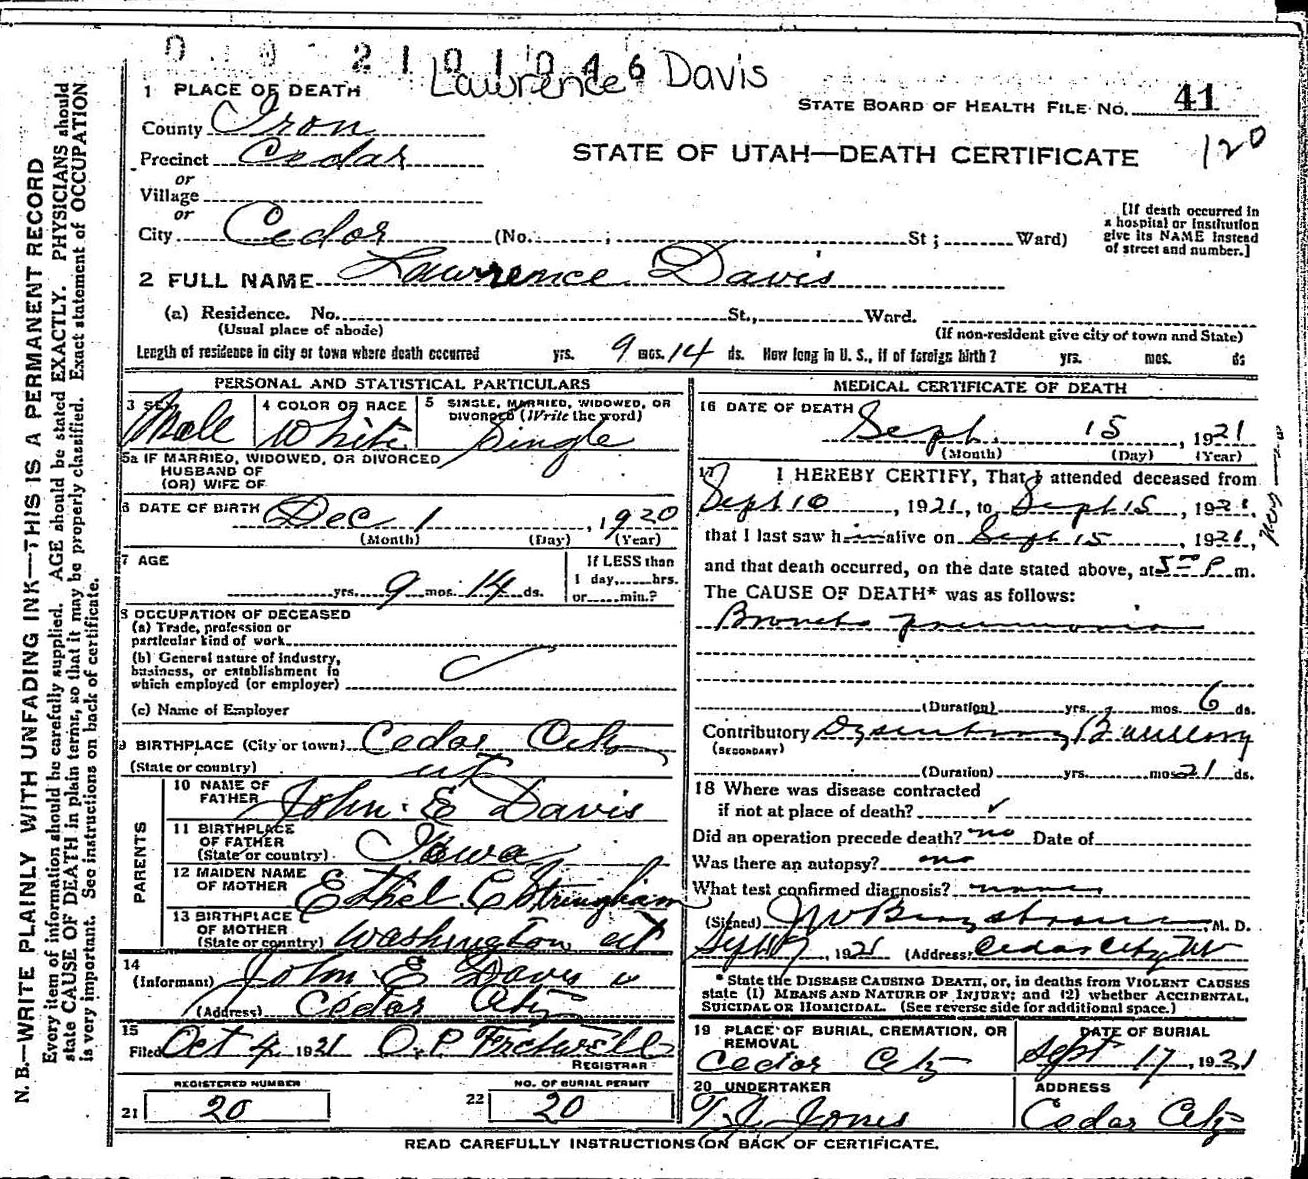 2101046
Lawrence Davis
1 PLACE OF DEATH
STATE BOARD OF HEALTH FILE NO. 41
County Iron
120
Precinct Cedar
STATE OF UTAH—DEATH CERTIFICATE
or
Village
or
City Cedar (No. ; St ; Ward)
[If death occurred in a hospital or institution give its NAME instead of street and number.]
2 FULL NAME Lawrence Davis
(a) Residence. No. St., Ward.
(Usual place of abode) (If non-resident give city or town and State)
Length of residence in city or town where death occurred yrs. 9 mos. 14 ds. How long in U. S., if of foreign birth? yrs. mos. ds
PERSONAL AND STATISTICAL PARTICULARS
3 SEX Male
4 COLOR OR RACE White
5 SINGLE, MARRIED, WIDOWED, OR DIVORCED (Write the word) Single
5a IF MARRIED, WIDOWED, OR DIVORCED
HUSBAND OF
(OR) WIFE OF
6 DATE OF BIRTH Dec 1, 1920
(Month) (Day) (Year)
7 AGE
yrs. 9 mos. 14 ds.
If LESS than
1 day, hrs.
or min.?
8 OCCUPATION OF DECEASED
(a) Trade, profession or
particular kind of work
(b) General nature of industry,
business, or establishment in
which employed (or employer)
(c) Name of Employer
9 BIRTHPLACE (City or town) Cedar City
(State or country) ut
PARENTS
10 NAME OF FATHER John E Davis
11 BIRTHPLACE OF FATHER (State or country) Iowa
12 MAIDEN NAME OF MOTHER Ethel C Stringham
13 BIRTHPLACE OF MOTHER (State or country) Washington ut
14
(Informant) John E Davis
(Address) Cedar City
15
Filed Oct 4, 1921 O. P. Fretwell
REGISTRAR
REGISTERED NUMBER
21 20
NO. OF BURIAL PERMIT
22 20
MEDICAL CERTIFICATE OF DEATH
16 DATE OF DEATH
Sept. 15, 1921
(Month) (Day) (Year)
17 I HEREBY CERTIFY, That I attended deceased from
Sept 10, 1921, to Sept 15, 1921,
that I last saw him alive on Sept 15, 1921,
and that death occurred, on the date stated above, at 5 P m.
The CAUSE OF DEATH* was as follows:
Broncho pneumonia
(Duration) yrs. mos. 6 ds.
Contributory Dysentery Bacillary
(SECONDARY)
(Duration) yrs. mos. 21 ds.
18 Where was disease contracted
if not at place of death? ✓
Did an operation precede death? no Date of
Was there an autopsy? no
What test confirmed diagnosis?
(Signed) M. D.
1921 (Address) Cedar City Ut
* State the DISEASE CAUSING DEATH, or, in deaths from VIOLENT CAUSES
state (1) MEANS AND NATURE OF INJURY; and (2) whether ACCIDENTAL,
SUICIDAL OR HOMICIDAL. (See reverse side for additional space.)
19 PLACE OF BURIAL, CREMATION, OR REMOVAL
Cedar City
DATE OF BURIAL
Sept 17, 1921
20 UNDERTAKER
T. J. Jones
ADDRESS
Cedar City
READ CAREFULLY INSTRUCTIONS ON BACK OF CERTIFICATE.
N. B.—WRITE PLAINLY WITH UNFADING INK—THIS IS A PERMANENT RECORD
Every item of information should be carefully supplied. AGE should be stated EXACTLY. PHYSICIANS should
state CAUSE OF DEATH in plain terms, so that it may be properly classified. Exact statement of OCCUPATION
is very important. See instructions on back of certificate.